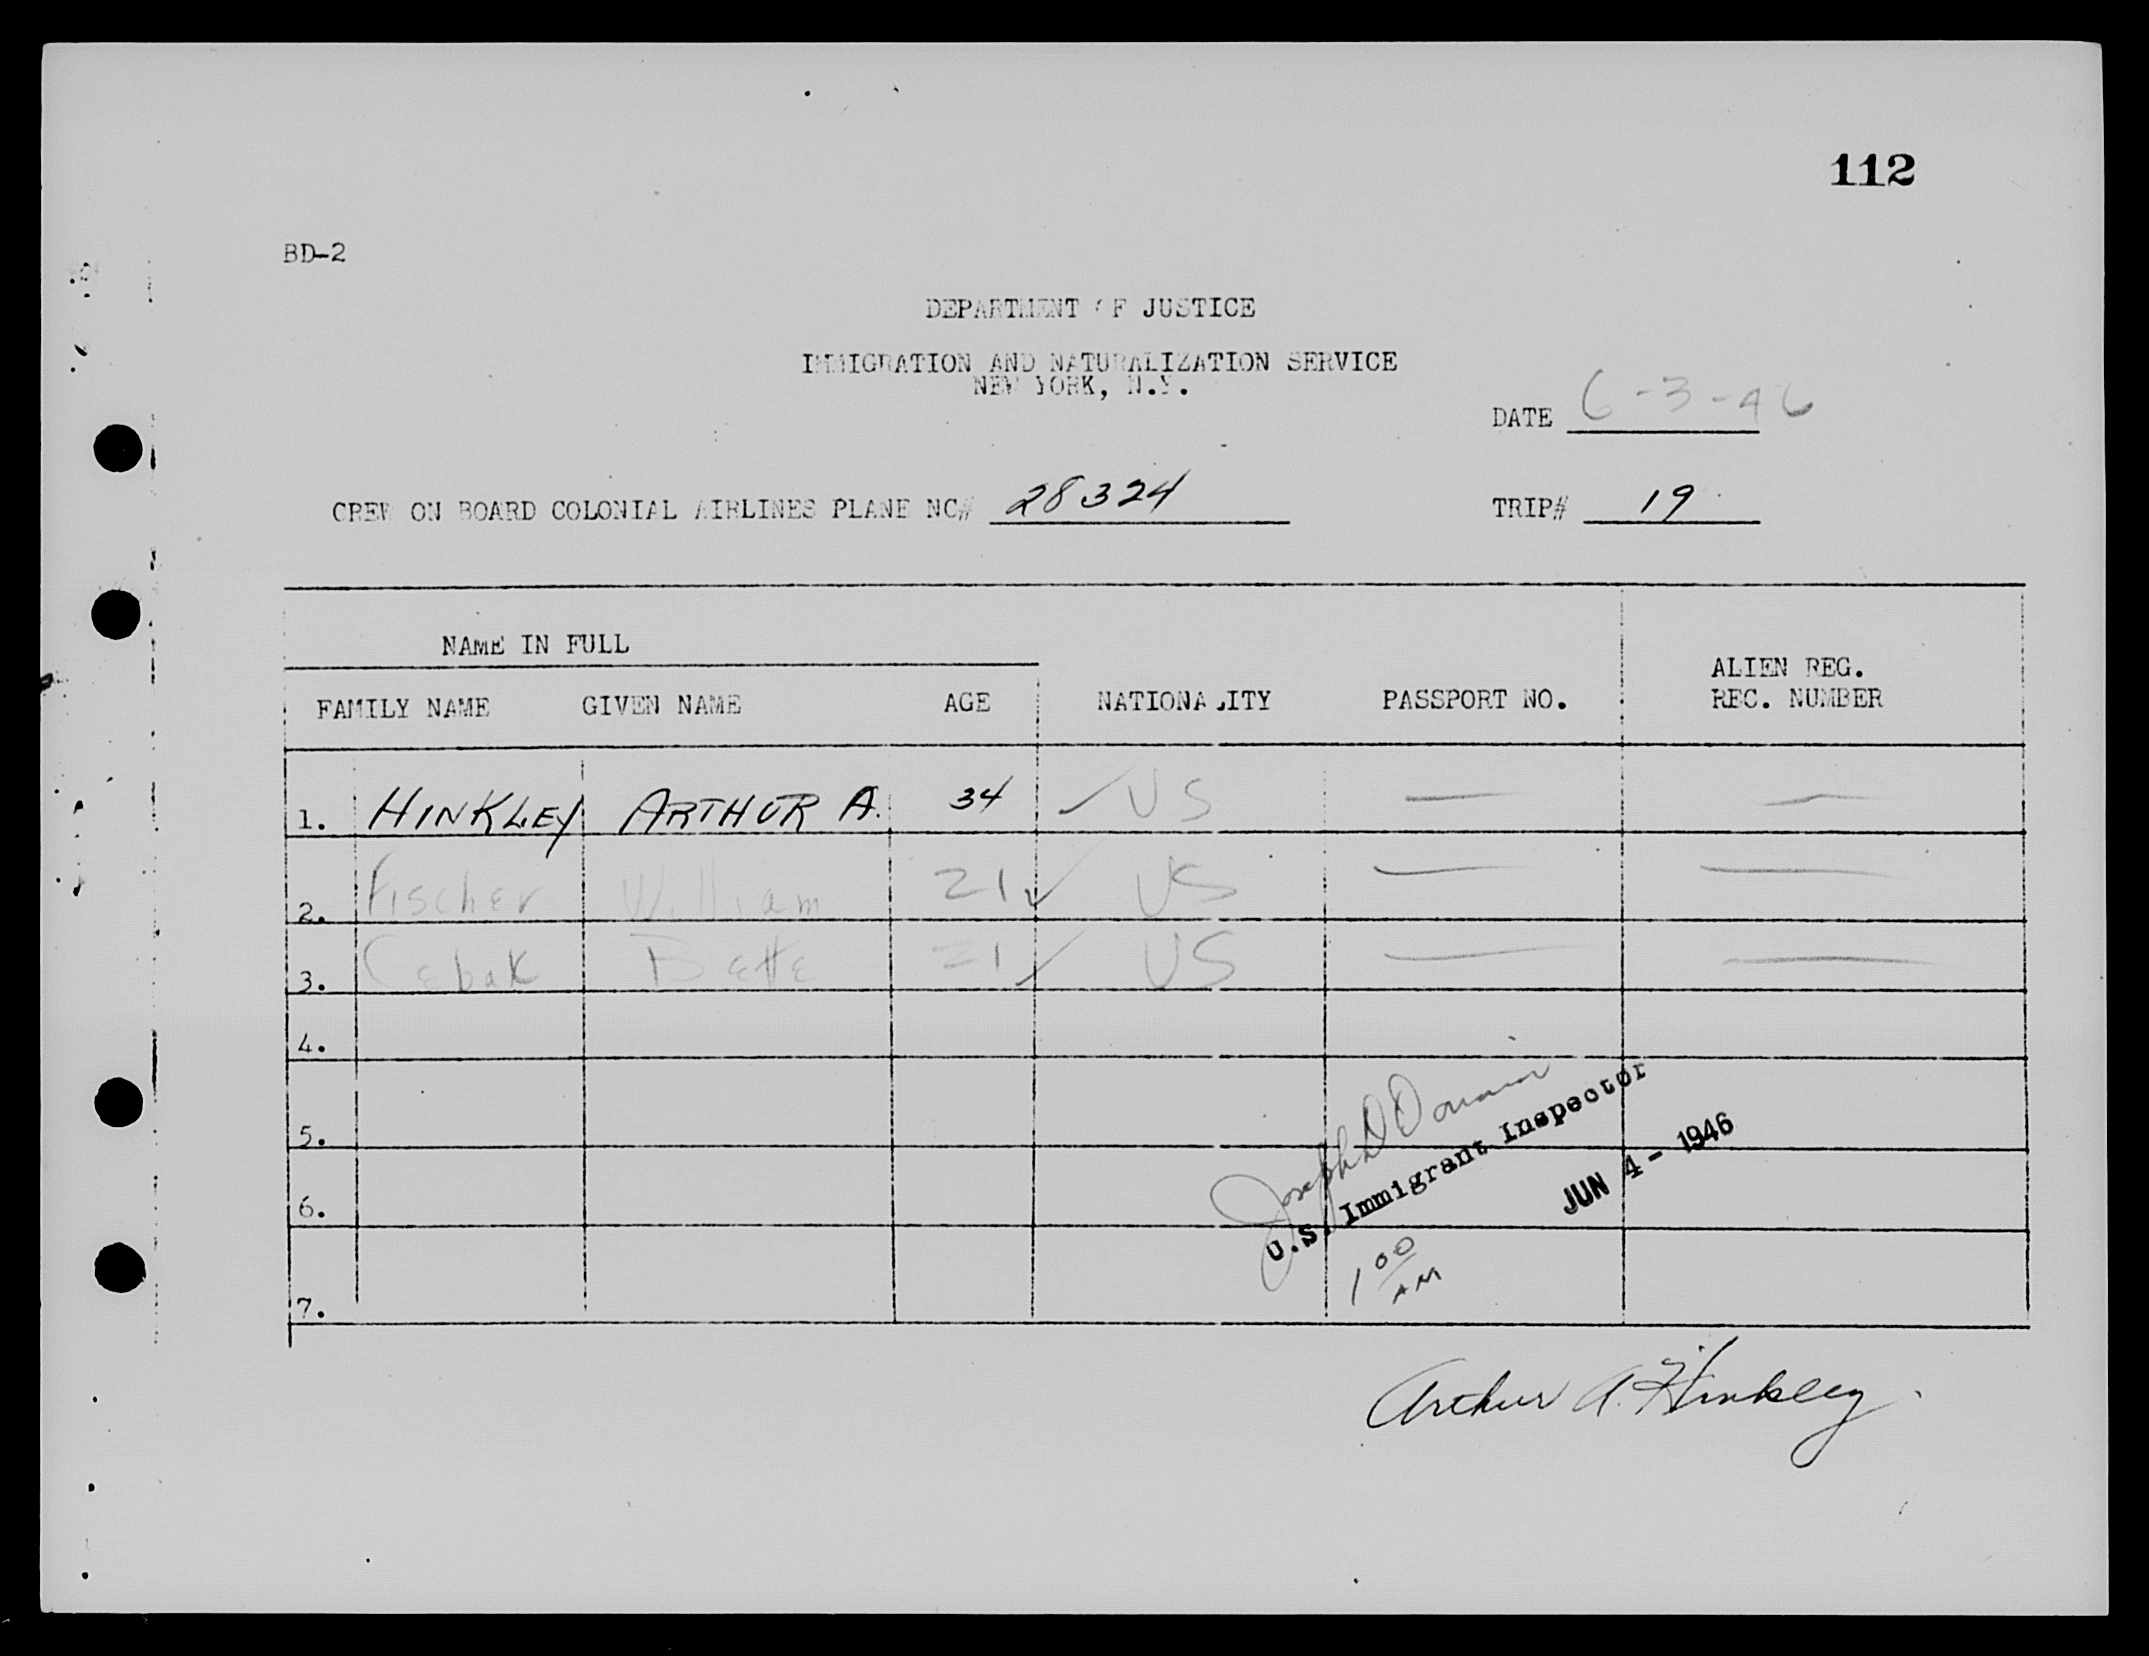 112
BD-2
DEPARTMENT OF JUSTICE
IMMIGRATION AND NATURALIZATION SERVICE
NEW YORK, N.Y.
DATE 6-3-46
CREW ON BOARD COLONIAL AIRLINES PLANE NC# 28324 TRIP# 19
NAME IN FULL
FAMILY NAME GIVEN NAME AGE NATIONALITY PASSPORT NO. ALIEN REG. REC. NUMBER
1. HINKLEY ARTHUR A. 34 ✓ US — —
2. Fischer William 21 ✓ US — —
3. Cebak Bette 21 ✓ US — —
4.
5.
6.
7.
Joseph D
U.S. Immigrant Inspector
JUN 4 - 1946
1 00 AM
Arthur A. Hinkley